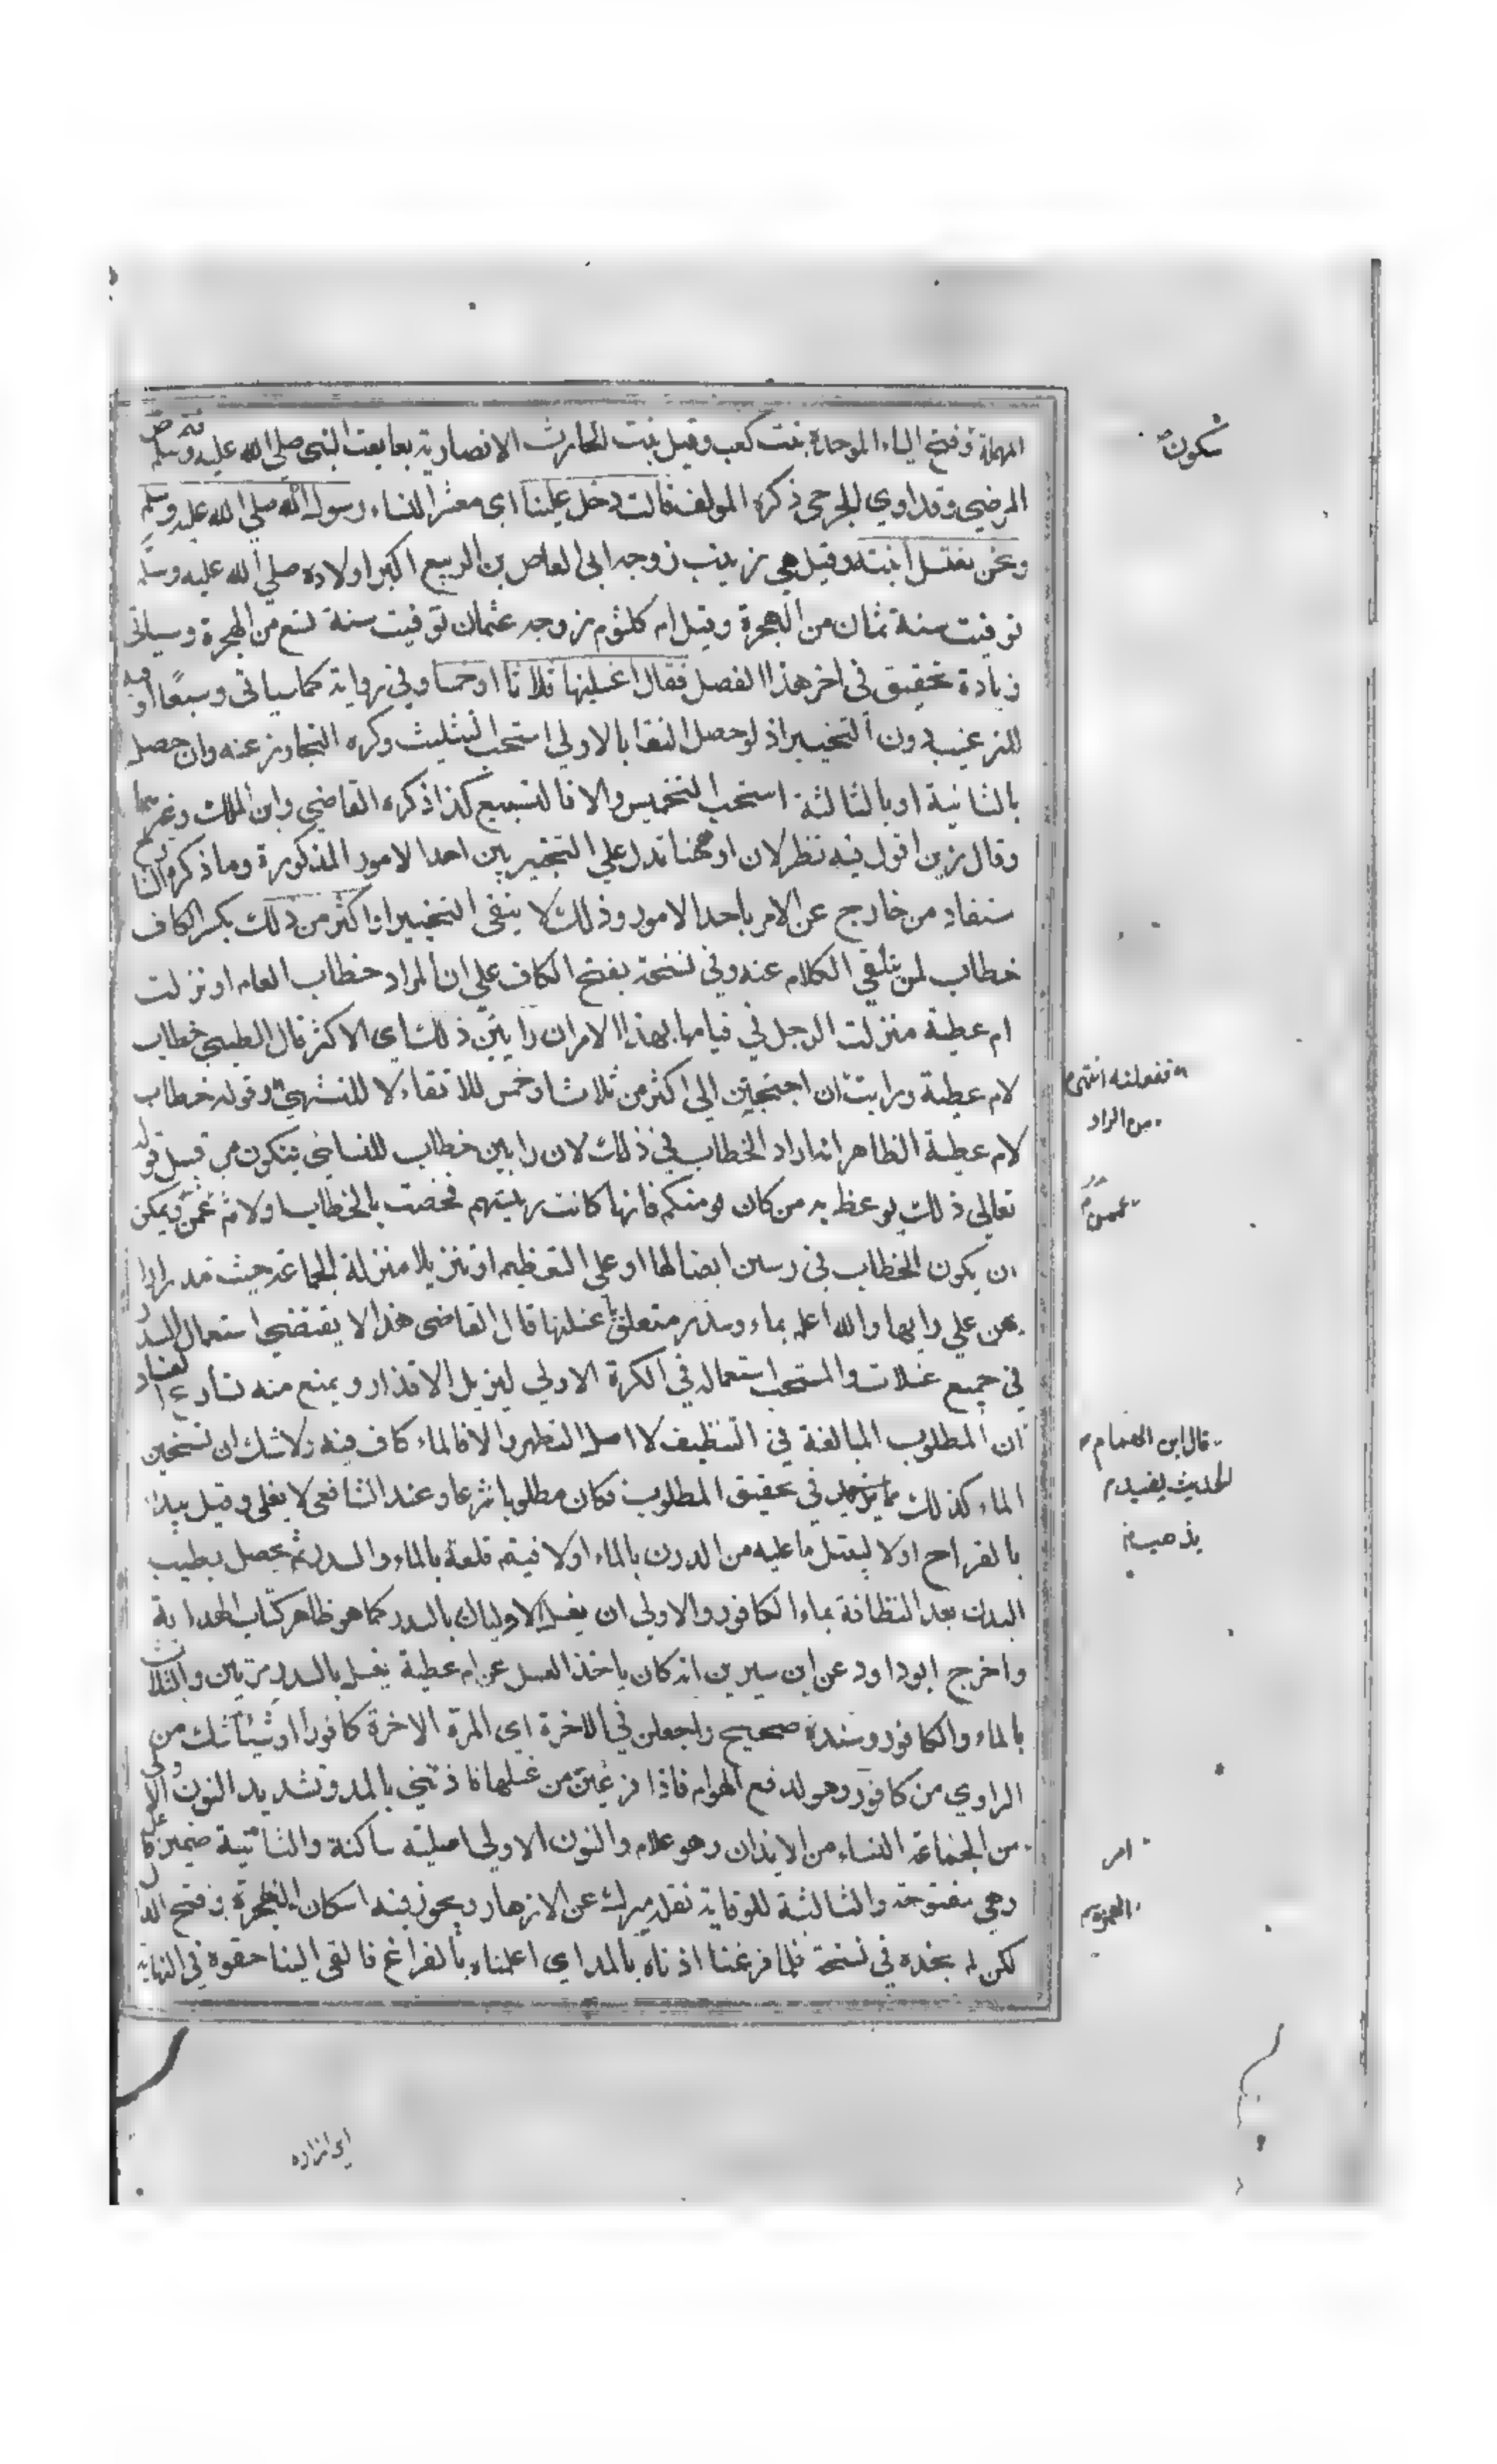 المهملة وفتح الياء الموحدة بنت كعب وقيل بنت الحارث الانصارية بعايعت النبي صلي الله عليه وسلم فتمرض
المرضي وتداوي الجرحي ذكره المولف قالت دخل علينا اي معشر النساء رسول الله صلي الله عليه وسلم
ونحن نغسل ابنته وقيل هي زينب زوجه ابي العاص بن الربيع اكبر اولاده صلي الله عليه وسلم
توفيت سنة ثمان من الهجرة وقيل ام كلثوم زوجه عثمان توفيت سنة تسع من الهجرة وسياتي
زيادة تحقيق في اخر هذا الفصل فقال اغسلنها ثلاثا او خمسا وفي رواية كما سياتي وسبعا او فيه
للترغيب دون التخيير اذ لو حصل النقا بالاولي استحب التثليث وكره التجاوز عنه وان حصل
بالثانية او بالثالثة استحب التخميس والا فالتسبيع كذا ذكره القاضي وابن الملك وغيرهما
وقال زين اقول فيه نظر لان او ههنا تدل علي التخيير بين احد الامور المذكورة وما ذكره النا
ستفاد من خارج عن الامر باحد الامور وذلك لا ينفي التخيير اذ اكثر من ذلك بكسر الكاف
خطاب لمن يتلقي الكلام عنه وفي نسخة بفتح الكاف علي ان المراد خطاب العام او نزلت
ام عطية منزلت الرجل في قيامها بهذا الامر ان رايتن ذلك اي الاكثر قال الطيبي خطاب
لام عطية ورايت ان احتجتن الي اكثر من ثلاث او خمس للانقاء لا للتشهي وقوله خطاب
لام عطية الظاهر انه اراد الخطاب في ذلك لان رايين خطاب للنساء فيكون من قبيل قوله
تعالي ذلك يوعظ به من كان يومنكم فانها كانت رئيستهم فخصت بالخطاب اولا ثم عمن ويمكن
ان يكون الخطاب في رسين ايضا لها او علي التعظيم او تنزيلا منزلة الجماعة حيث مدرا
هن علي رايها والله اعلم بماء وسدر متعلق باغسلنها قال القاضي هذا لا يقتضي استعمال السدر
في جميع غسلات والمستحب استعماله في الكرة الاولي ليزيل الاقذار ويمنع منه تسارع الفساد
ان المطلوب المبالغة في التنظيف لا اصل التطهر والا فالماء كاف فيه ولا شك ان تسخين
الماء كذلك مما يزيد في تحقيق المطلوب فكان مطلوبا شرعا وعند الشافعي لا يغلي وقيل يبدا
بالقراح اولا ليبتل ما عليه من الدرن بالماء اولا فيتم قلعه بالماء والسدر ثم يحصل بطيب
البدن بعد النظافة بماء الكافور والاولي ان يغسل الاوليان بالسدر كما هو ظاهر كتاب الهداية
واخرج ابو داود عن ابن سيرين انه كان ياخذ الغسل عن ام عطية يغسل بالسدر مرتين والثالث
بالماء والكافور وسنده صحيح واجعلن في الاخرة اي المرة الاخرة كافورا او شيئا شك من
الراوي من كافور وهو لدفع الهوام فاذا فرغتن من غسلها فاذنني بالمد وتشديد النون الاولي
من الجماعة النساء من الايذان وهو علام والنون الاولي اصلية ساكنة والثانية ضمير فاعل
وهي مفتوحة والثالثة للوقاية نقله ميرك عن الازهار ويجوز فيه اسكان الهمزة وفتح الذال
لكن لم نجده في نسخة فلما فرغنا اذناه بالمد اي اعلمناه بالفراغ فالقي الينا حقوه في النهاية
سكون
تفعلنه انتهي
من الراد
عمهن
قال ابن الهمام
الحديث يفيد
يذهب
امر
الهمزة
اي ازاره